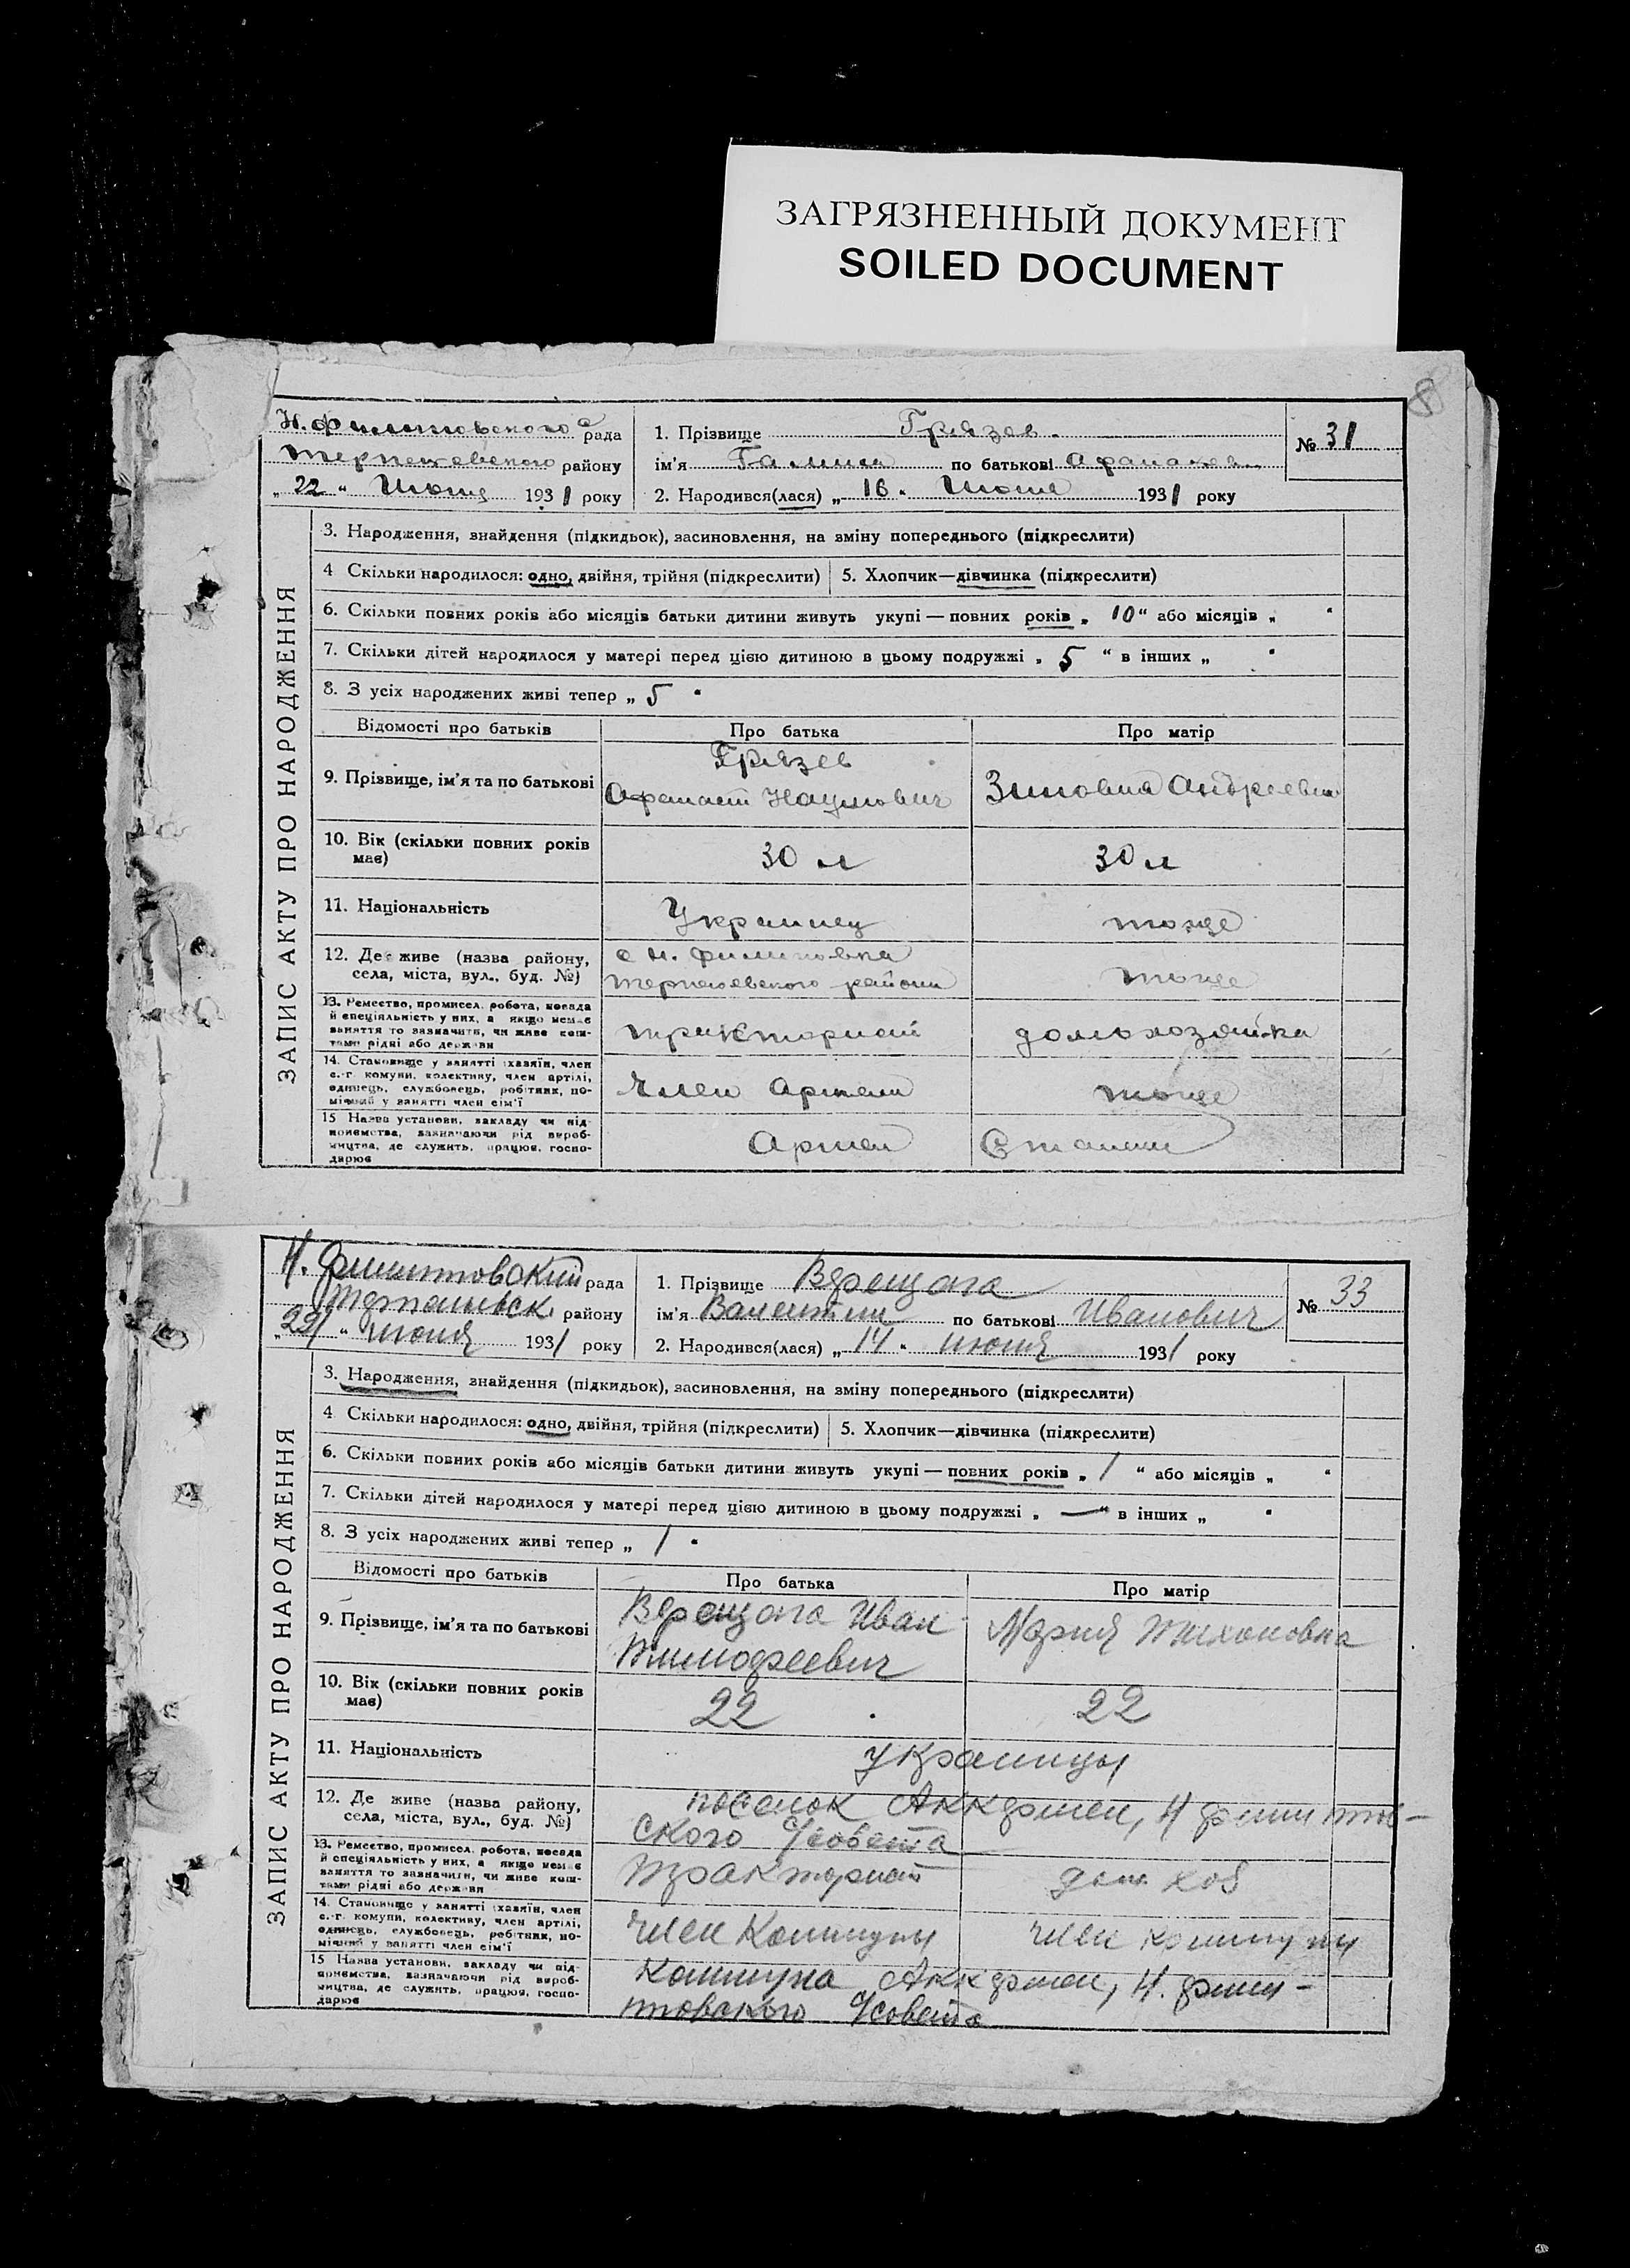 ЗАГРЯЗНЕННЫЙ ДОКУМЕНТ
SOILED DOCUMENT
8
Н. Филипповского рада
району
„22“ Июня 1931 року
1. Прізвище Грязев.
ім'я Галина по батькові Афанасев.
2. Народився(лася) „16“ Июня 1931 року
№ 31
ЗАПИС АКТУ ПРО НАРОДЖЕННЯ
3. Народження, знайдення (підкидьок), засиновлення, на зміну попереднього (підкреслити)
4 Скільки народилося: одно, двійня, трійня (підкреслити) 5. Хлопчик—дівчинка (підкреслити)
6. Скільки повних років або місяців батьки дитини живуть укупі — повних років „ 10“ або місяців „ “
7. Скільки дітей народилося у матері перед цією дитиною в цьому подружжі „ 5 “ в інших „ “
8. З усіх народжених живі тепер „ 5 “
Відомості про батьків Про батька Про матір
9. Прізвище, ім'я та по батькові
Грязев
Афанасий Наумович
Зиновия Андреевна
10. Вік (скільки повних років
має)
30 л 30 л
11. Національність Украинец тоже
12. Де живе (назва району,
села, міста, вул., буд. №)
с Н. Филиповка
района
тоже
13. Ремество, промисел, робота, посада
й спеціяльність у них, а якщо немає
заняття то зазначити, чи живе кош-
тами рідні або держави
тракторист домохозяйка
14. Становище у занятті (хазяїн, член
с.-г. комуни, колективу, член артілі,
одинець, службовець, робітник, по-
мічний у занятті член сім'ї
Член Артели тоже
15 Назва установи, закладу чи під-
приємства, зазначаючи рід вироб-
ництва, де служить, працює, госпо-
дарює
Артел Сталина
Н. Филипповский рада
району
„22“ июня 1931 року
1. Прізвище Верещага
ім'я Валентин по батькові Иванович
2. Народився(лася) „14“ июня 1931 року
№ 33
ЗАПИС АКТУ ПРО НАРОДЖЕННЯ
3. Народження, знайдення (підкидьок), засиновлення, на зміну попереднього (підкреслити)
4 Скільки народилося: одно, двійня, трійня (підкреслити) 5. Хлопчик—дівчинка (підкреслити)
6. Скільки повних років або місяців батьки дитини живуть укупі — повних років „ 1 “ або місяців „ “
7. Скільки дітей народилося у матері перед цією дитиною в цьому подружжі „ — “ в інших „ “
8. З усіх народжених живі тепер „ 1 “
Відомості про батьків Про батька Про матір
9. Прізвище, ім'я та по батькові
Верещага Иван
Тимофеевич
Мария Тихоновна
10. Вік (скільки повних років
має)
22 22
11. Національність украинцы
12. Де живе (назва району,
села, міста, вул., буд. №)
поселок Аккермен, Н Филиппов-
ского С/совета
13. Ремество, промисел, робота, посада
й спеціяльність у них, а якщо немає
заняття то зазначити, чи живе кош-
тами рідні або держави
тракторист дом. хоз
14. Становище у занятті (хазяїн, член
с.-г. комуни, колективу, член артілі,
одинець, службовець, робітник, по-
мічний у занятті член сім'ї
член Коммуны член коммуны
15 Назва установи, закладу чи під-
приємства, зазначаючи рід вироб-
ництва, де служить, працює, госпо-
дарює
Коммуна Аккермен, Н. Филип-
повского С/совета